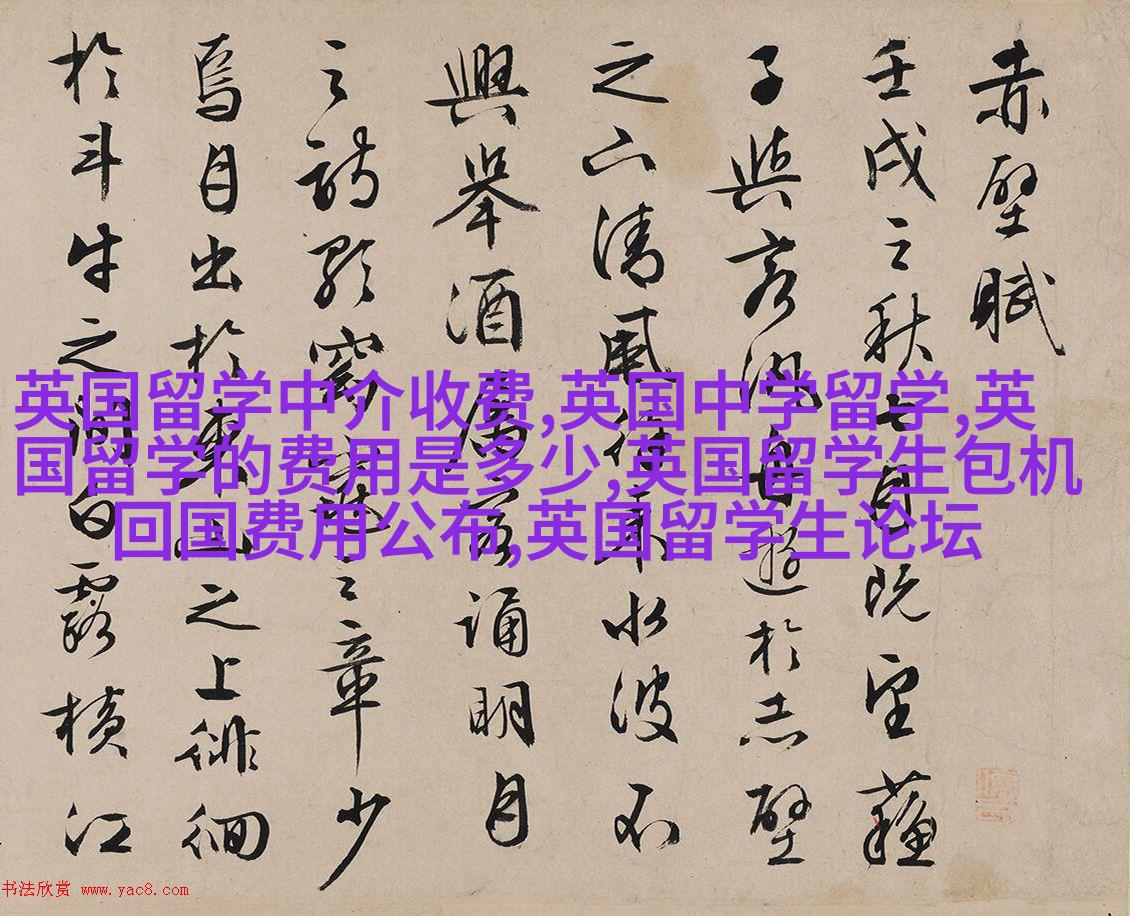 赤壁賦
壬戌之秋七月既望蘇
子與客泛舟遊於赤壁
之下清風徐來水波不
興舉酒屬客誦明月
之詩歌窈窕之章少
焉月出於東山之上徘徊
於斗牛之間白露橫江
英国留学中介收费,英国中学留学,英
国留学的费用是多少,英国留学生包机
回国费用公布,英国留学生论坛
书法欣赏 www.yac8.com